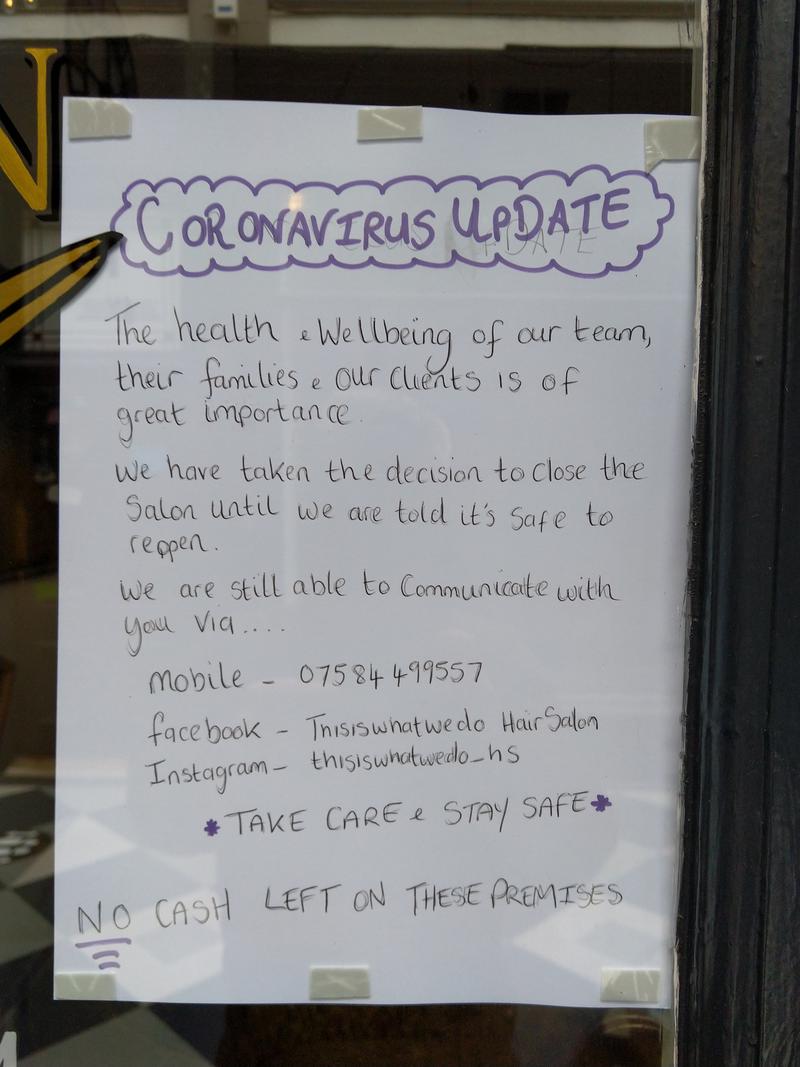 N
CORONAVIRUS UPDATE
The health & Wellbeing of our team,
their families & our clients is of
great importance.
We have taken the decision to close the
Salon until we are told it's safe to
reopen.
We are still able to Communicate with
you via....
mobile - 07584 499557
facebook - Thisiswhatwedo Hair Salon
Instagram - thisiswhatwedo_hs
*TAKE CARE & STAY SAFE*
NO CASH LEFT ON THESE PREMISES